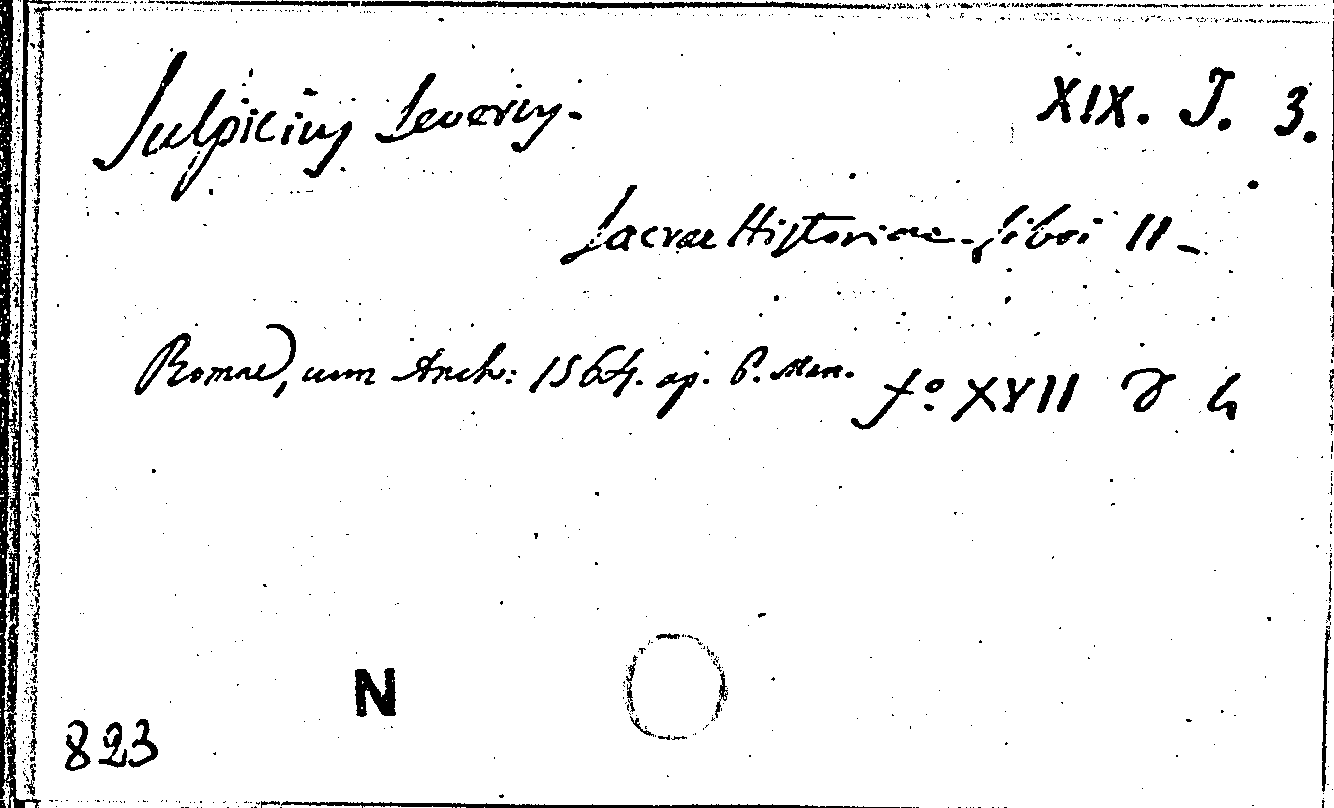 Sulpicius Severus. XIX. J. 3.
Sacrae Historiae libri II
Romae, cum Anch: 1564. ap. P. Man. fo. XVII
N
823